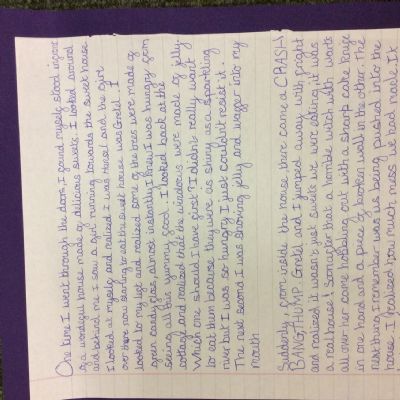 One time I went through the doors, I found myself stood infront
of a wonderful house made of delicious sweets. I looked around
and behind me I saw a girl running towards the sweet house
I looked at myself and realized I was Hansel and the girl
over there now staring to eat the sweet house was Gretel. I
looked to my left and realized some of the trees were made of
green candy floss almost instantly I knew I was hungry from
seeing all this yummy food. I looked back at the
cottage and realized that the windows were made of jelly.
Which one should I have first? I didn't really want
to eat them because they were as shiny as a sparkling
river but I was so hungry I just couldn't resist it.
The next second I was shoving jelly and wafer into my
mouth
Suddenly, from inside the house there came a CRASH!
BANG! THUMP! Gretel and I jumped away with fright
and realized it wasn't just sweets we were eating it was
a real house! Soon after that a horrible witch with warts
all over her came hobbling out with a sharp cake knife
in one hand and a piece of broken wall in the other. The
next thing I remember was us being pushed into the
house. I realized how much mess we had made. It